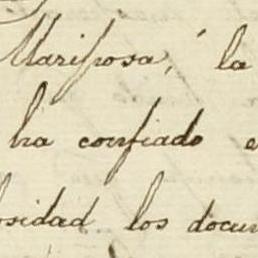 Mariposa, á la
ha confiado e
osidad los docum